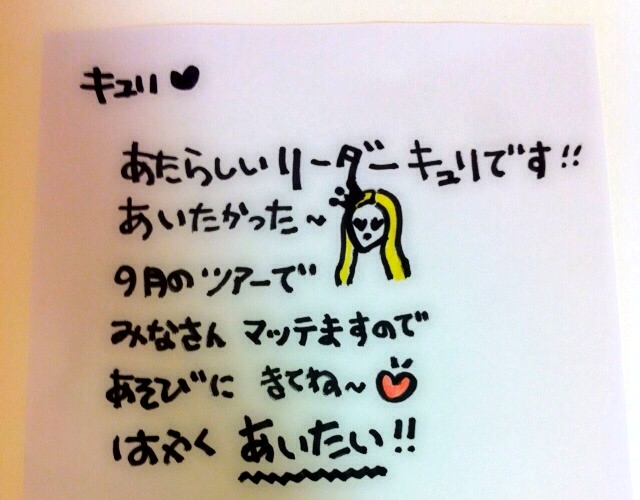 キュリ♥
あたらしいリーダーキュリです!!
あいたかった~
9月のツアーで
みなさん マッテますので
あそびに きてね~
はやく あいたい!!